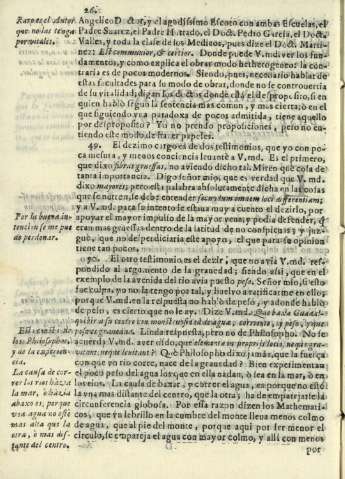 26.
Raypes el Autor
que no las tenga
por vitales.
Angelico Doctor, y el agudissimo Escoto con ambas Escuelas, el
Padre Suarez, el Padre Hurtado, el Doct. Pedro Garcia, el Doct.
Valles, y toda la clase de los Medicos, pues dize el Doct. Marti-
nez: Est communior, & certior. Donde puede V.md. ver los fun-
damentos, y como explica el obrar modo hetherogeneo: la con-
traria es de pocos modernos. Siendo, pues, necesario hablar de
estas facultades para su modo de obrar, donde no se controuertia
de su vitalidad, digan los doctos, donde està el desproposito, si en
quien hablò segun la sentencia mas comun, y mas cierta; ò en el
que siguiendo vna paradoxa de pocos admitida, tiene aquello
por desproposito? Yo no prendo proposiciones, pero no en-
tiendo este modo de hazer papeles.
49. El dezimo cargo es de dos testimonios, que yo con po-
ca mesura, y menos conciencia leuantè à V.md. Es el primero,
que dixo fibras gruessas, no auiendo dicho tal. Miren què cosa de
tanta importancia. Digo señor mio, que es verdad que V.md.
dixo mayores; pero esta palabra absolutamente dicha en las cosas
que se nutren, se debe entender
y à V.md. para su intento le estaua muy à cuento el dezirlo, por
apoyar el mayor impulso de la mayor vena; y podia defender, que
eran mas gruessas dentro de la latitud de no conspicuas; y juz-
guè, que no desperdiciaria este apoyo, el que para su opinion
tiene tan pocos.
Por la buena in-
tencion se me pue-
de perdonar.
50. El otro testimonio es el dezir, que no auia V.md. res-
pondido al argumento de la grauedad; siendo assi, que en el
exemplo de la avenida del rio avia puesto peso. Señor mio, si esto
fue culpa, yo no la tengo por tal, y bueluo à ratificarme en ello,
porque V.md. en la respuesta no hablò de peso, y adonde hablò
de peso, es cierto que no le ay. Dize V.md.
Linda respuesta, pero no de Philosopho. No se
acuerda V.md. aver oìdo, que elementa in proprijs locis, neque gra-
vitant, neque levitant? Què Philosopho dixo jamàs, que la fuerça
con que vn rio corre, nace de la grauedad? Bien experimentan
el poco peso del agua los que en ella nadan, ò sea la mar, ò en
los rios. La causa de baxar, y correr el agua, es porque no estè
la vna mas distante del centro, que la otra; ha de emparejarse la
circunferencia globosa. Por essa razon dizen los Mathemati-
cos, que vn lebrillo en la cumbre del monte lleua menos colmo
de agua, que al pie del monte, porque aqui por ser menor el
circulo, se empareja el agua con mayor colmo, y alli con menos
los Philosophos,
y de la experiencia.
La causa de cor-
rer los rios hàzia
la mar, ò hàzia
abaxo es, porque
vna agua no estè
mas alta que la
otra, ò mas dis-
tante del centro.
por